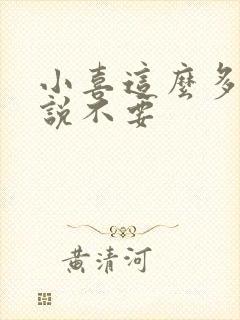 小喜這麼多
說不要
黃清河